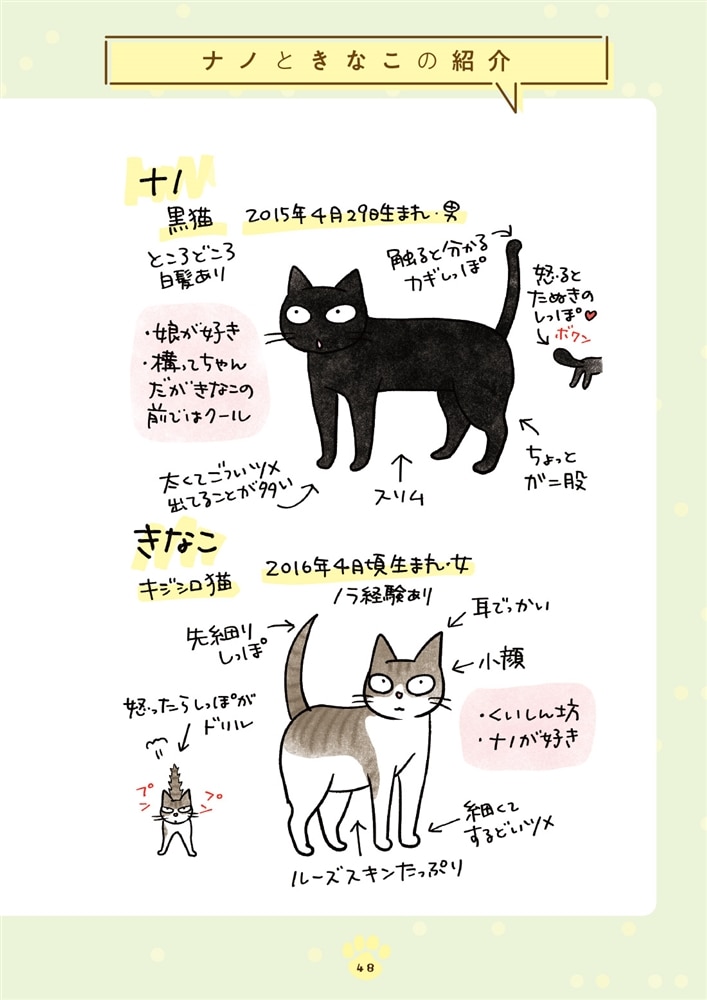 ナノときなこの紹介
ナノ
黒猫
2015年4月29日生まれ・男
ところどころ
白髪あり
触ると分かる
カギしっぽ
怒ると
たぬきの
しっぽ♥
ボワン
・娘が好き
・構ってちゃん
だがきなこの
前ではクール
太くてごついツメ
出てることが多い
スリム
ちょっと
ガニ股
きなこ
キジシロ猫
2016年4月頃生まれ・女
ノラ経験あり
先細り
しっぽ
耳でっかい
小顔
怒ったらしっぽが
ドリル
プン
プン
・くいしん坊
・ナノが好き
細くて
するどいツメ
ルーズスキンたっぷり
48